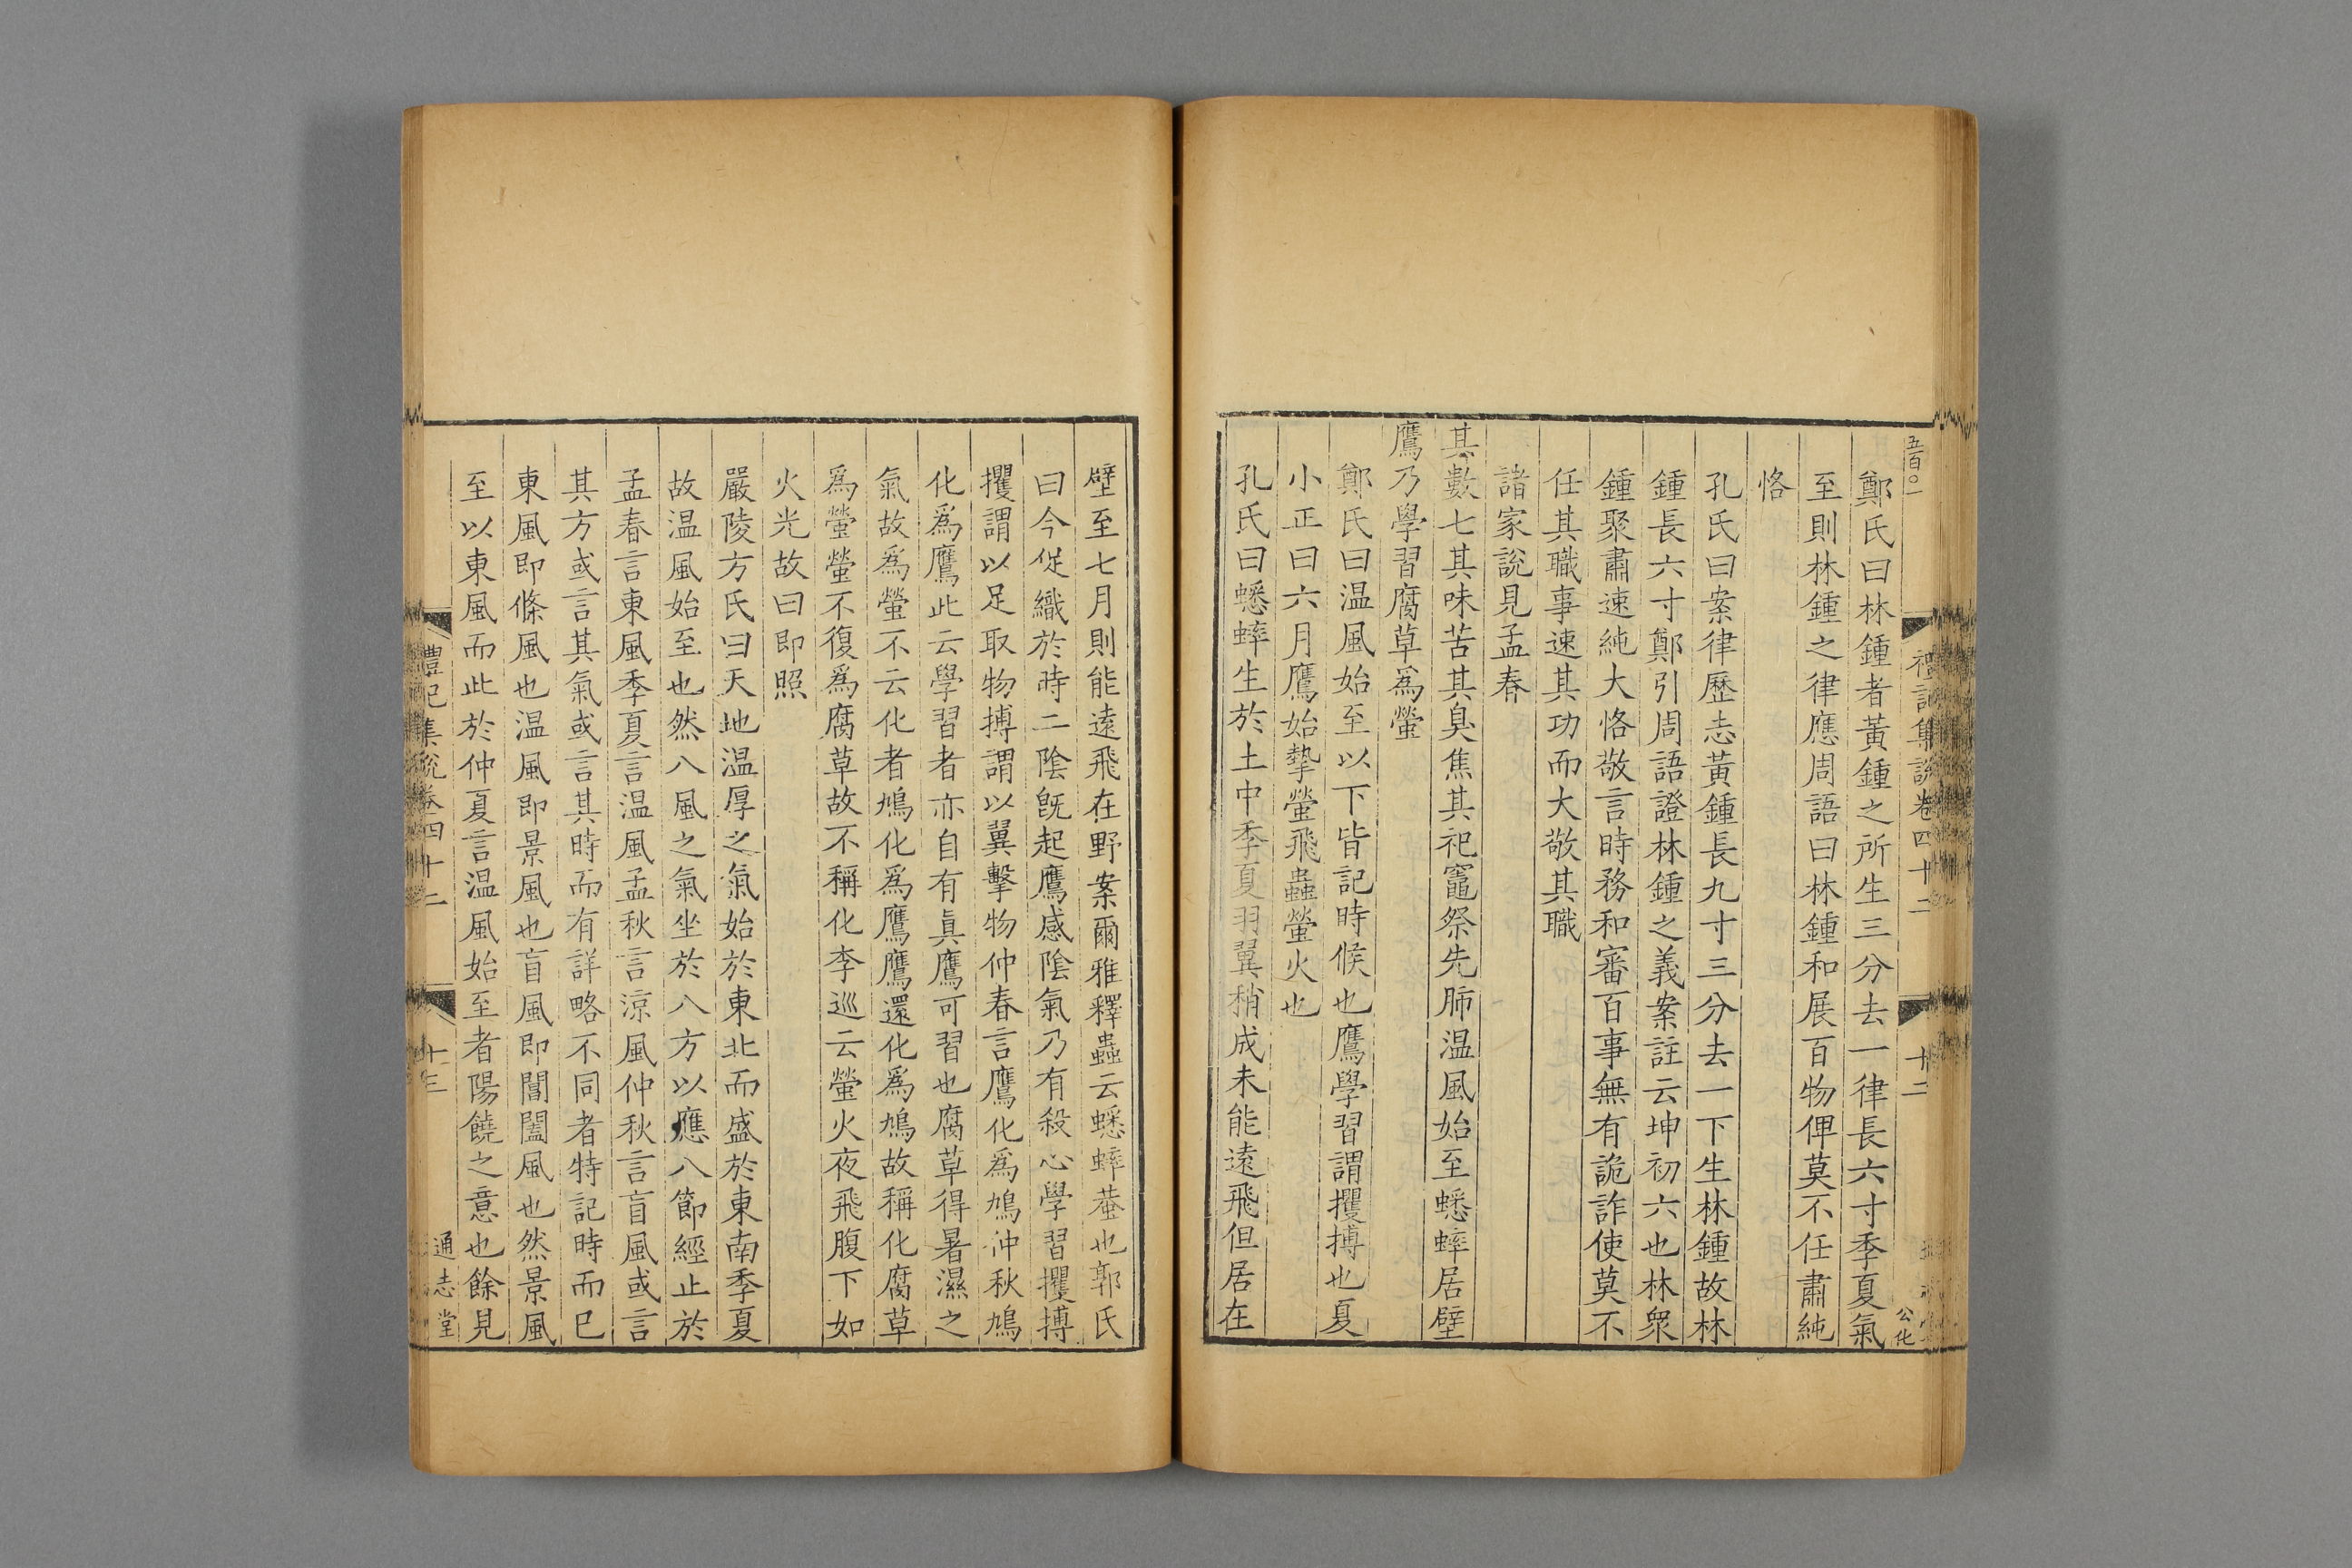 五百〇一
禮記集說卷四十二
十二
公化
鄭氏曰林鍾者黃鍾之所生三分去一律長六寸季夏氣
至則林鍾之律應周語曰林鍾和展百物俾莫不任肅純
恪
孔氏曰案律歷志黃鍾長九寸三分去一下生林鍾故林
鍾長六寸鄭引周語證林鍾之義案註云坤初六也林衆
鍾聚肅速純大恪敬言時務和審百事無有詭詐使莫不
任其職事速其功而大敬其職
諸家說見孟春
其數七其味苦其臭焦其祀竈祭先肺温風始至蟋蟀居壁
鷹乃學習腐草爲螢
鄭氏曰温風始至以下皆記時候也鷹學習謂攫搏也夏
小正曰六月鷹始摯螢飛蟲螢火也
孔氏曰蟋蟀生於土中季夏羽翼稍成未能遠飛但居在
壁至七月則能遠飛在野案爾雅釋蟲云蟋蟀蛬也郭氏
曰今促織於時二陰旣起鷹感陰氣乃有殺心學習攫搏
攫謂以足取物搏謂以翼擊物仲春言鷹化爲鳩仲秋鳩
化爲鷹此云學習者亦自有眞鷹可習也腐草得暑濕之
氣故爲螢不云化者鳩化爲鷹鷹還化爲鳩故稱化腐草
爲螢螢不復爲腐草故不稱化李巡云螢火夜飛腹下如
火光故曰即照
嚴陵方氏曰天地温厚之氣始於東北而盛於東南季夏
故温風始至也然八風之氣坐於八方以應八節經止於
孟春言東風季夏言温風孟秋言涼風仲秋言盲風或言
其方或言其氣或言其時而有詳略不同者特記時而已
東風即條風也温風即景風也盲風即閶闔風也然景風
至以東風而此於仲夏言温風始至者陽饒之意也餘見
禮記集說卷四十二
十三
通志堂